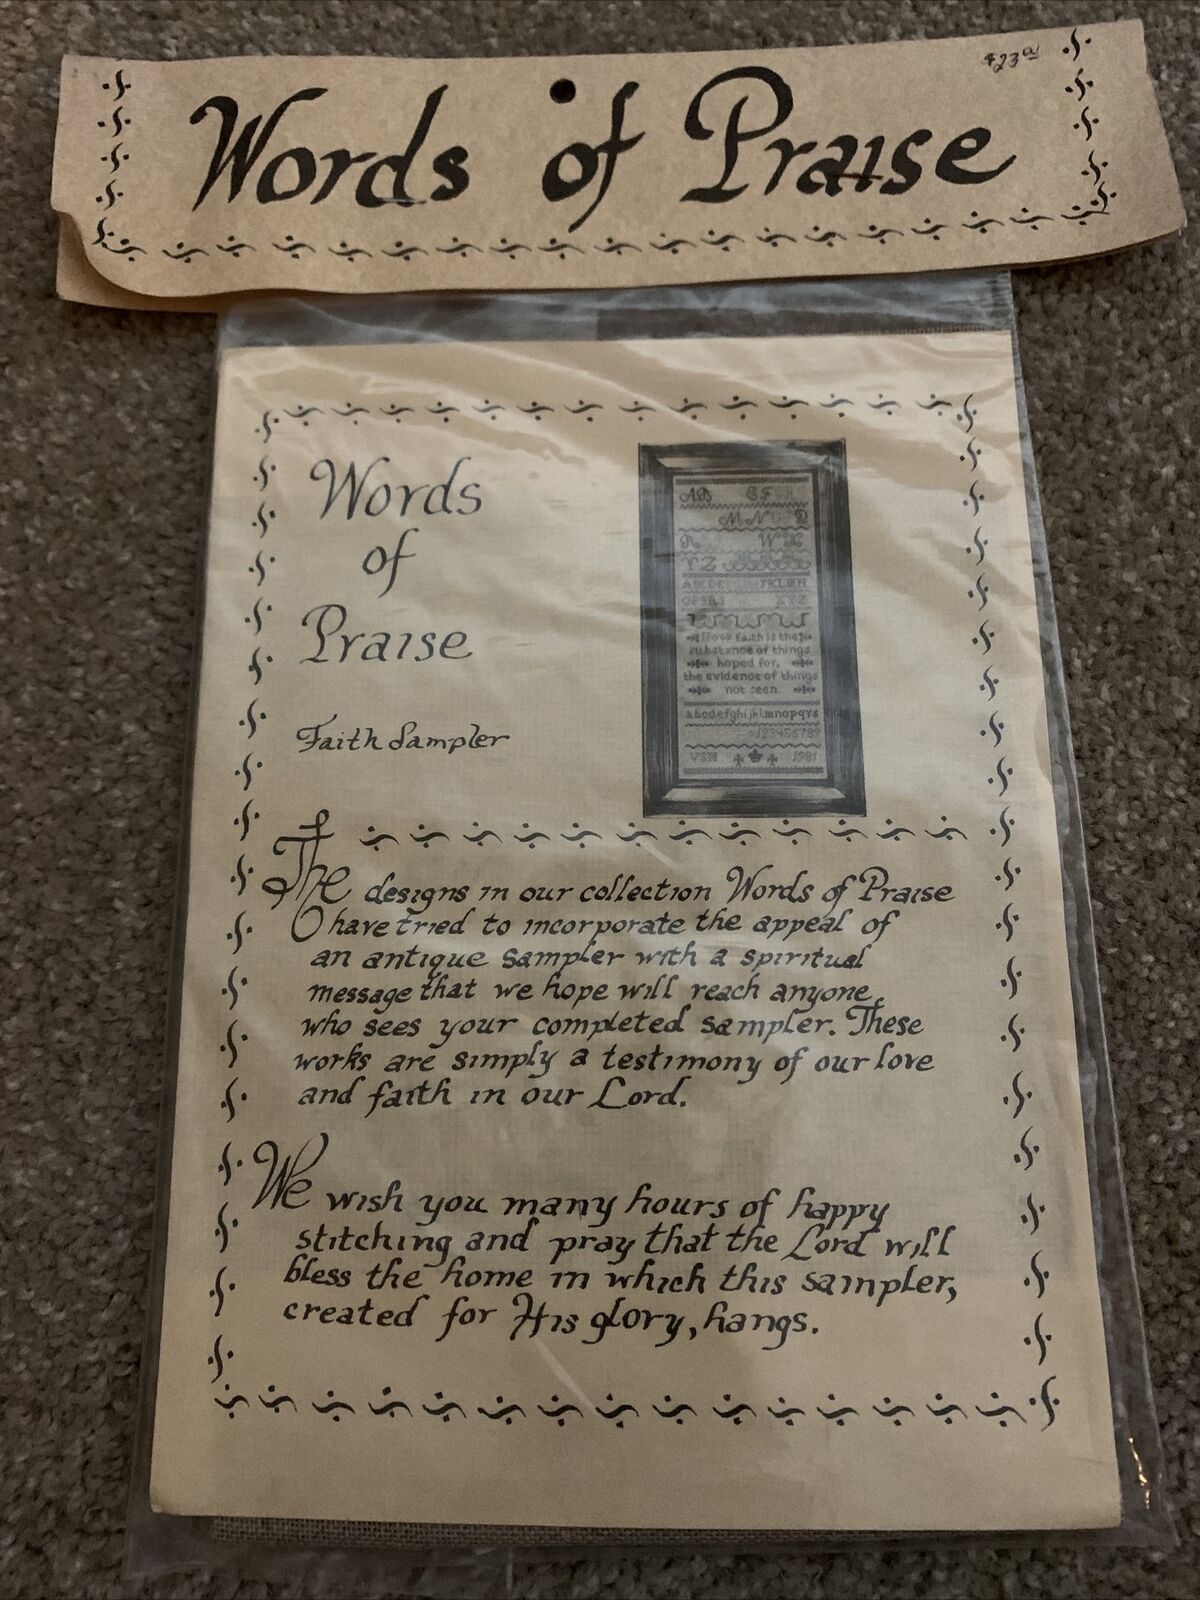 $23.00
Words of Praise
Words
of
Praise
Faith Sampler
AB CF
MN
R W X
YZ
ABCDE JKLMN
OPQRS XYZ
Now faith is the
substance of things
hoped for,
the evidence of things
not seen
abcdefghijklmnopqrs
123456789
VSH 1981
The designs in our collection Words of Praise
have tried to incorporate the appeal of
an antique sampler with a spiritual
message that we hope will reach anyone
who sees your completed sampler. These
works are simply a testimony of our love
and faith in our Lord.
We wish you many hours of happy
stitching and pray that the Lord will
bless the home in which this sampler,
created for His glory, hangs.